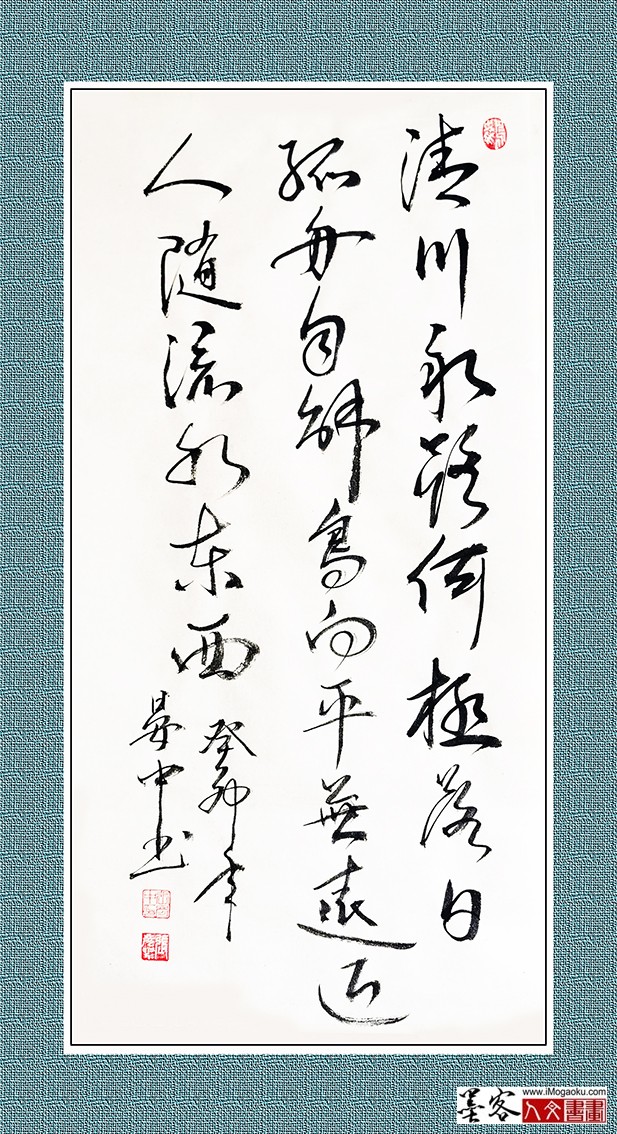 清川永路何极落日
孤舟自觧鸟向平蕪遠近
人随流水东西
癸卯年
中书
墨客
www.iMogaoku.com
人文書畫